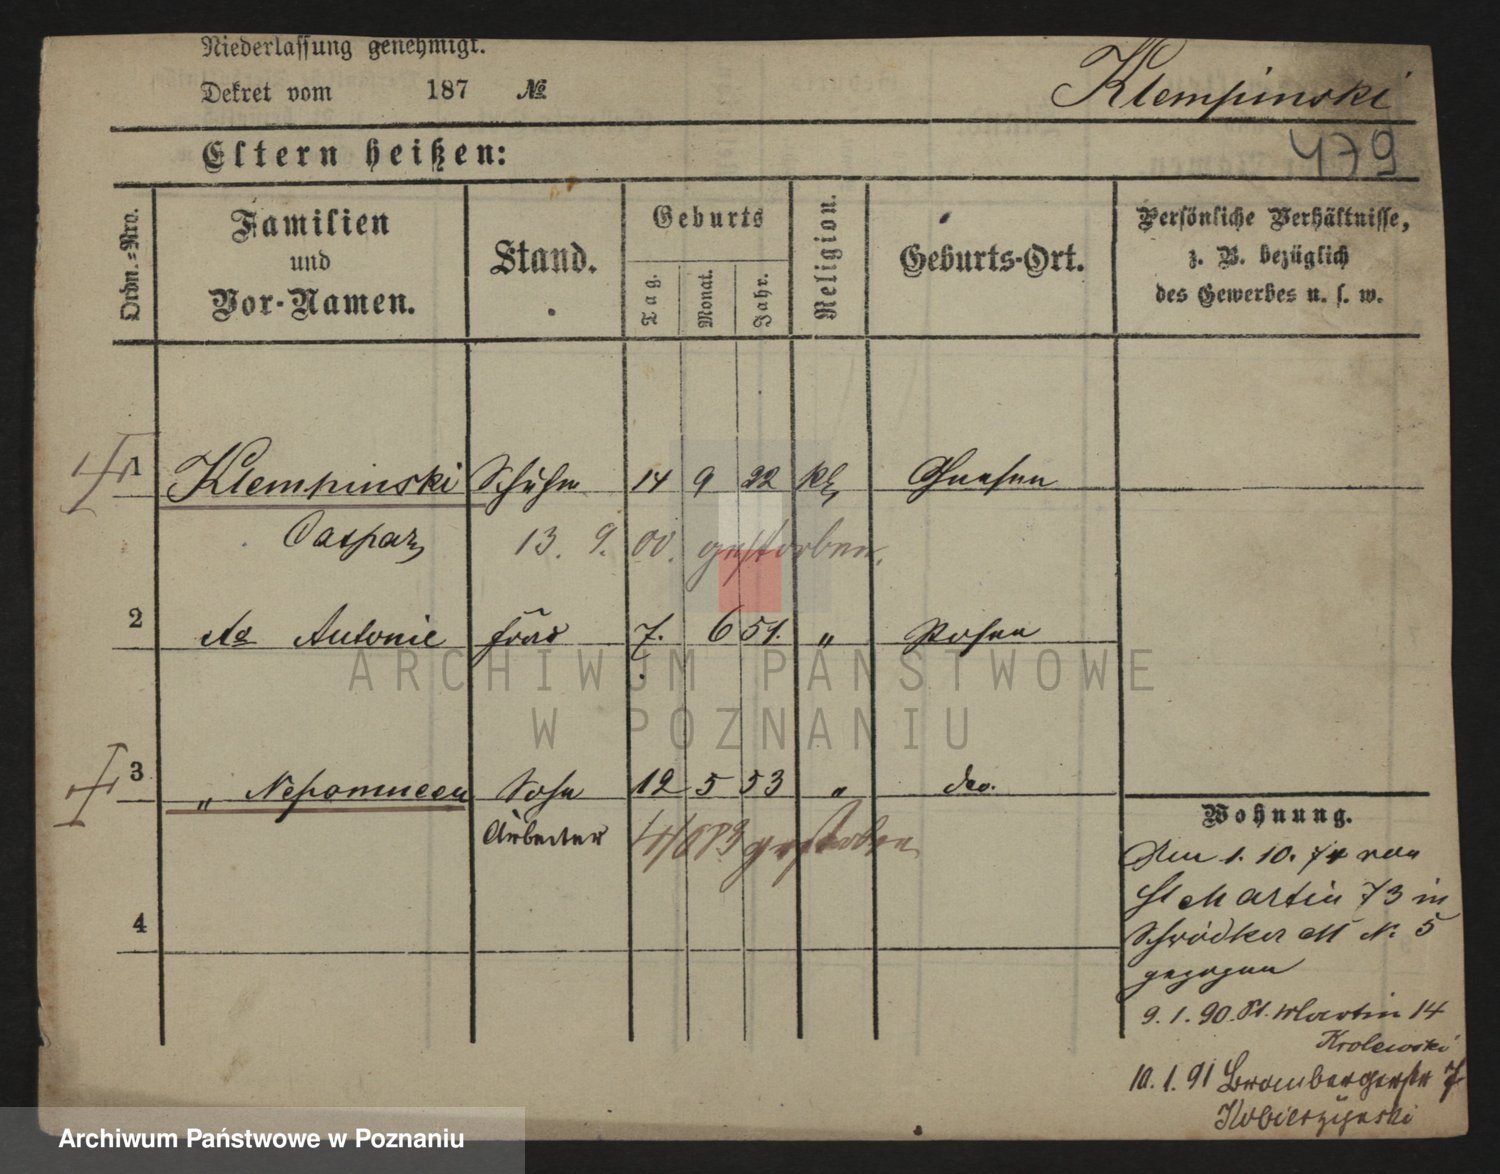 Niederlassung genehmigt.
Dekret vom 187 №
Klempinski
479
Eltern heißen:
Ordn.=Nro.
Familien und Vor-Namen.
Stand.
Geburts
Tag.
Monat.
Jahr.
Religion.
Geburts-Ort.
Persönliche Verhältnisse, z. B. bezüglich des Gewerbes u. s. w.
1 Klempinski Schuhm 14 9 22 kth Gnesen
Caspar 13. 9. 00. gestorben.
2 Antonie Frau 7. 6 51. „ Posen
3 „ Nepomucen Sohn 12 5 53 „ do.
Arbeiter gestorben
4
Wohnung.
Den 1. 10. 74 von
St Martin 73 in
Schrödker M N. 5
gezogen
9. 1. 90. St. Martin 14
Krolewski
10. 1. 91 Brombergerstr 7
Kobierzynski
ARCHIWUM PAŃSTWOWE
W POZNANIU
Archiwum Państwowe w Poznaniu